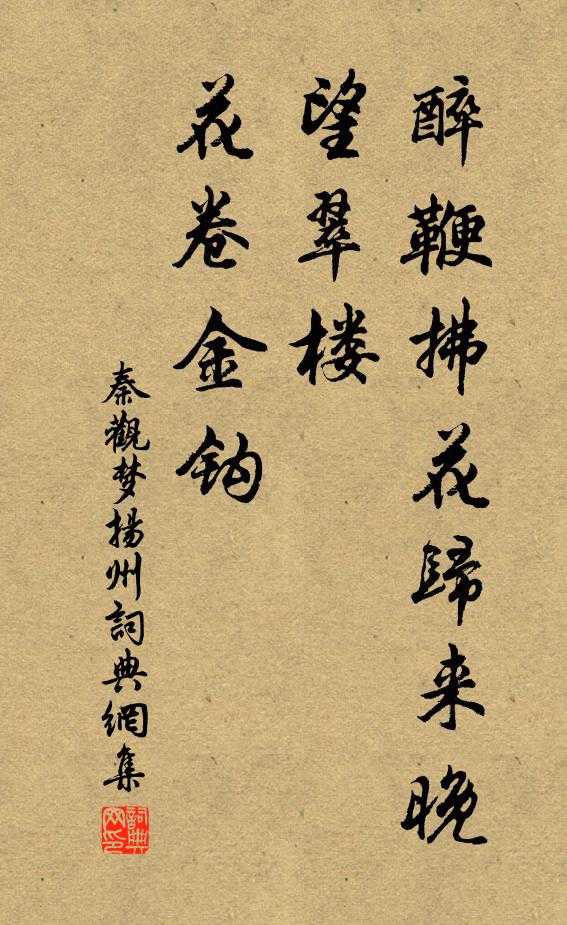 醉鞭拂花歸来晚
望翠楼
花卷金鈎
秦觀梦揚州詞典網集
詞典网印